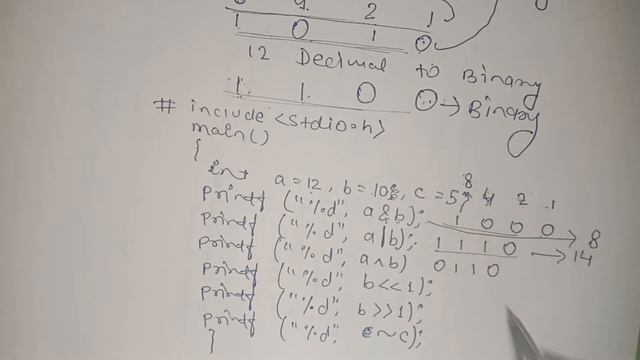 8 4 2 1
1 0 1 0
12 Decimal to Binary
1 1 0 0 → Binary
# include <stdio.h>
main()
{
int a=12, b=10, c=5; 8 4 2 1
printf ("%d", a&b); 1 0 0 0 → 8
printf ("%d", a|b); 1 1 1 0 → 14
printf ("%d", a^b) 0 1 1 0
printf ("%d", b<<1);
printf ("%d", b>>1);
printf ("%d", ~c);
}